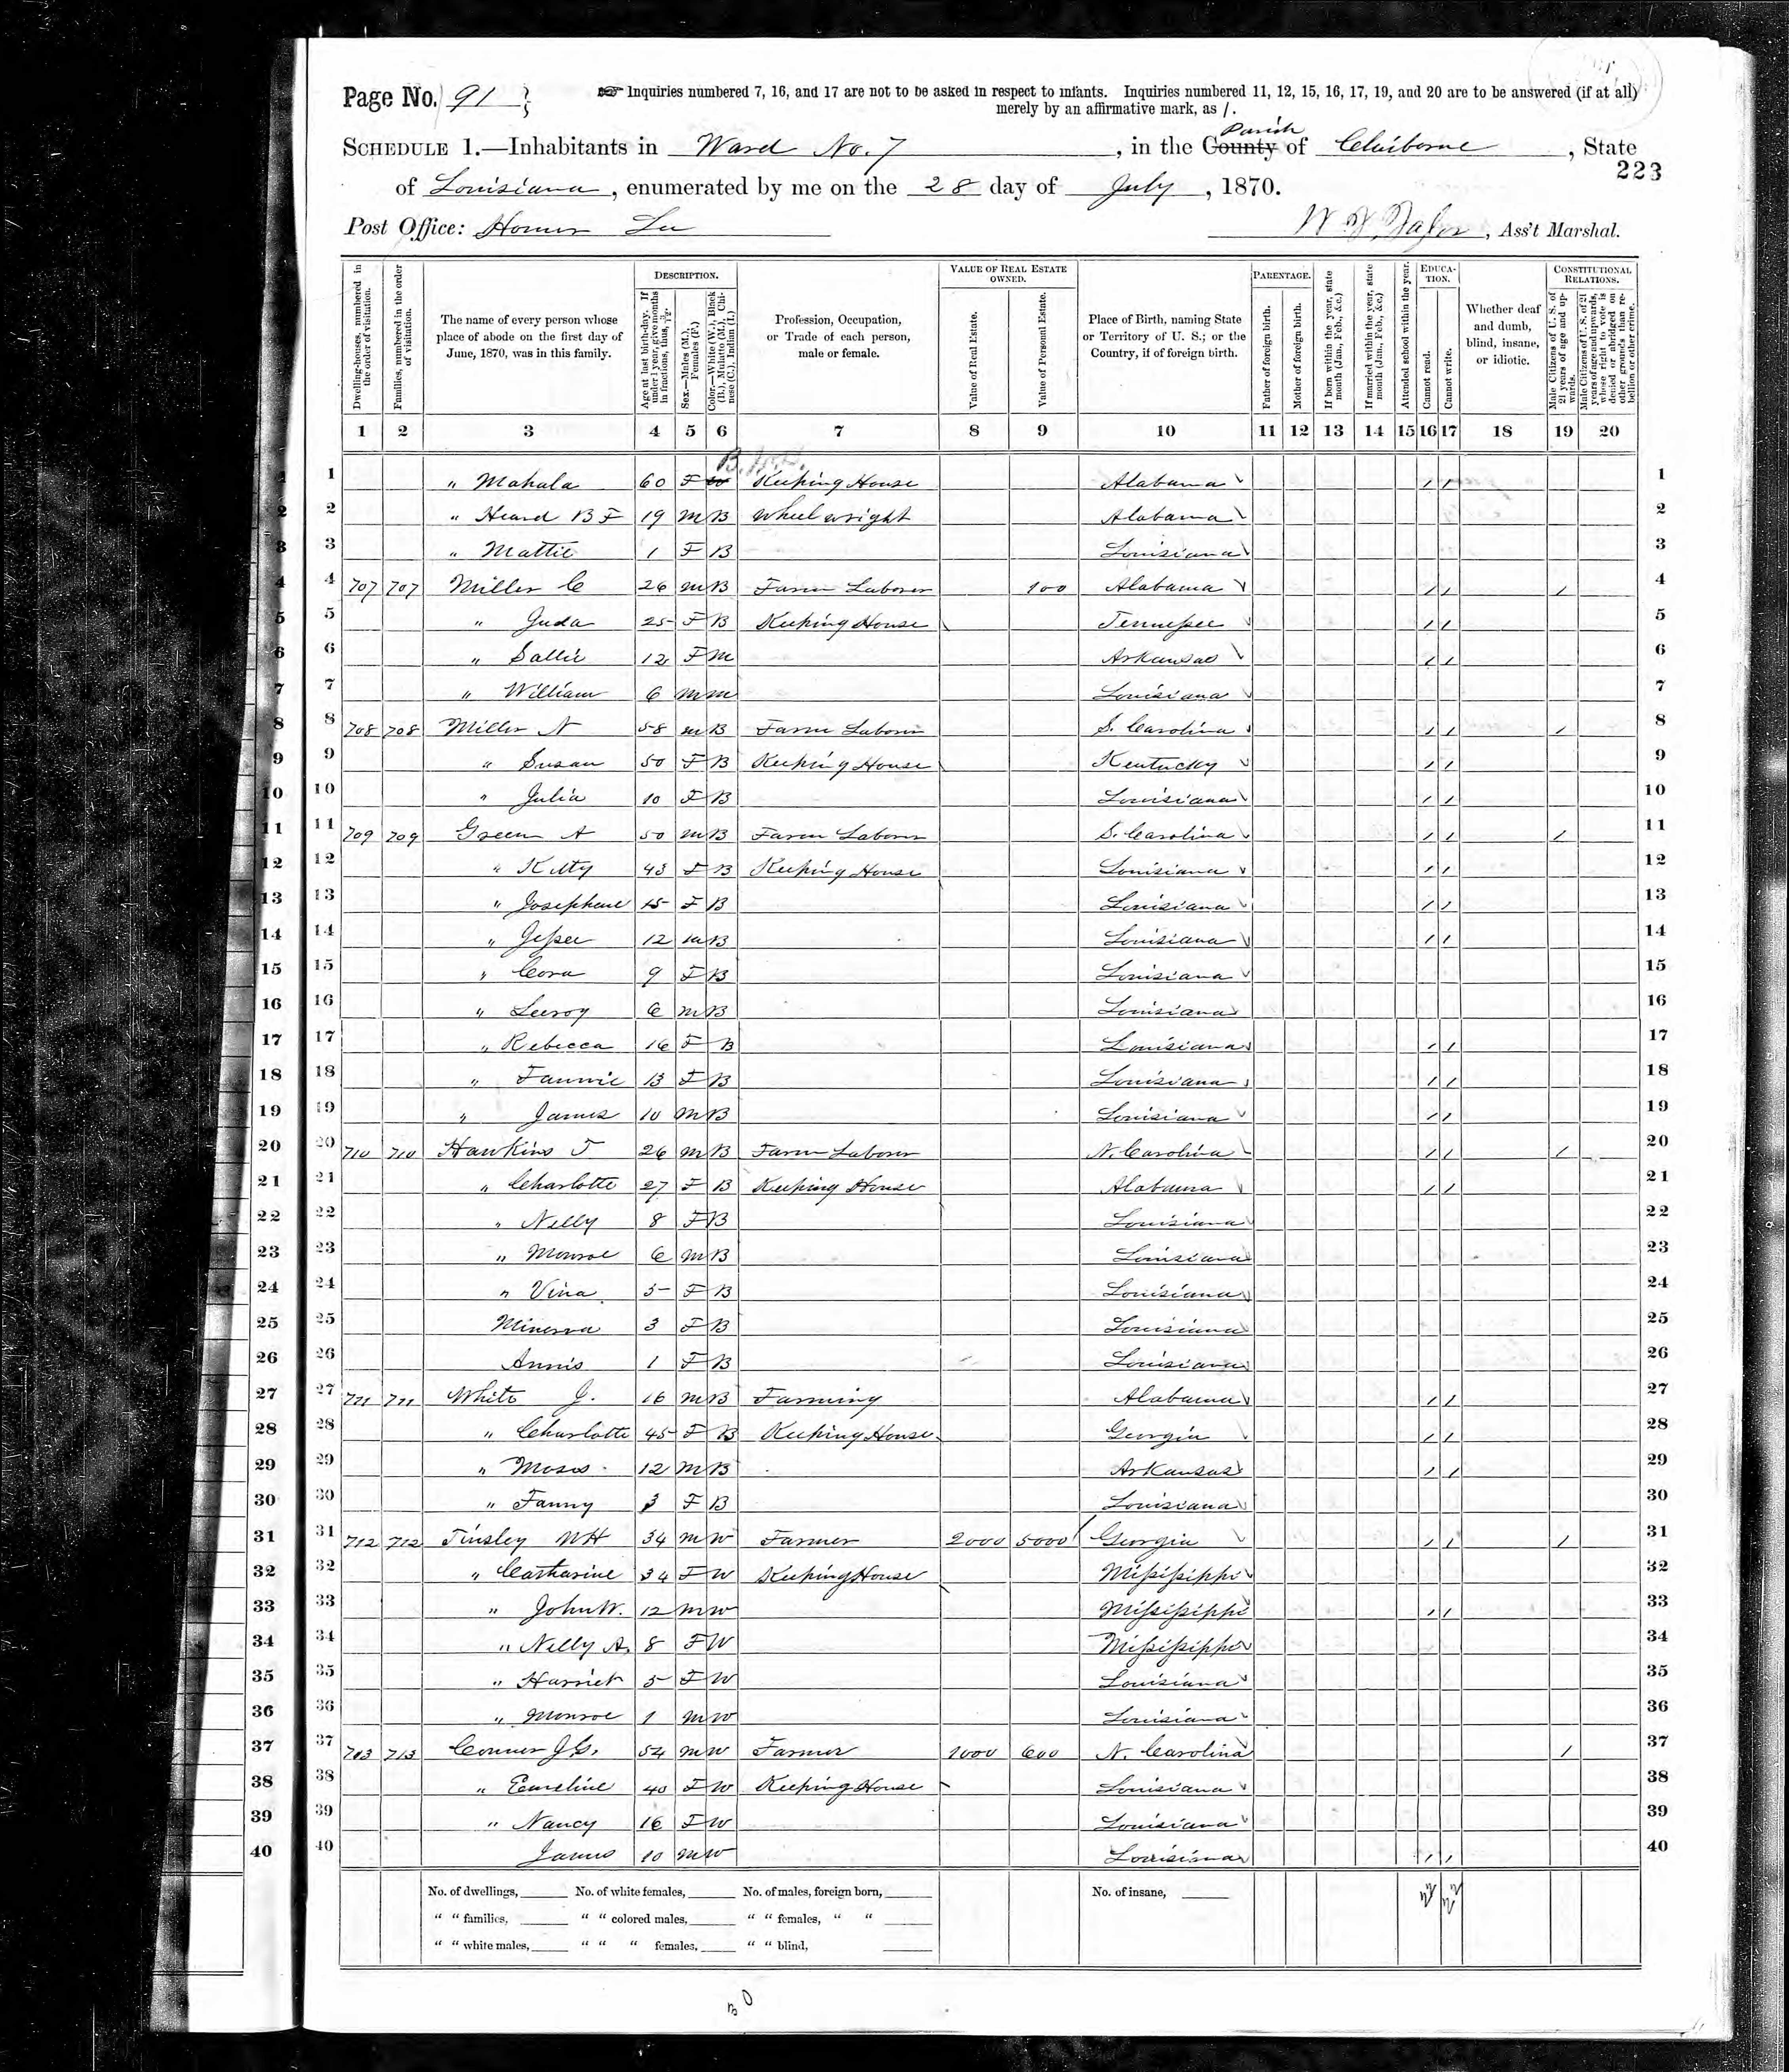 Page No. 91
☞ Inquiries numbered 7, 16, and 17 are not to be asked in respect to infants. Inquiries numbered 11, 12, 15, 16, 17, 19, and 20 are to be answered (if at all) merely by an affirmative mark, as /.
SCHEDULE 1.—Inhabitants in Ward No. 7, in the County Parish of Claiborne, State
223
of Louisiana, enumerated by me on the 28 day of July, 1870.
Post Office: Homer La
W F, Ass't Marshal.
Dwelling-houses, numbered in the order of visitation.
Families, numbered in the order of visitation.
The name of every person whose place of abode on the first day of June, 1870, was in this family.
DESCRIPTION.
Age at last birth-day. If under 1 year, give months in fractions, thus, 3/12.
Sex.—Males (M.), Females (F.)
Color.—White (W.), Black (B.), Mulatto (M.), Chinese (C.), Indian (I.)
Profession, Occupation, or Trade of each person, male or female.
VALUE OF REAL ESTATE OWNED.
Value of Real Estate.
Value of Personal Estate.
Place of Birth, naming State or Territory of U. S.; or the Country, if of foreign birth.
PARENTAGE.
Father of foreign birth.
Mother of foreign birth.
If born within the year, state month (Jan., Feb., &c.)
If married within the year, state month (Jan., Feb., &c.)
Attended school within the year.
EDUCATION.
Cannot read.
Cannot write.
Whether deaf and dumb, blind, insane, or idiotic.
CONSTITUTIONAL RELATIONS.
Male Citizens of U. S. of 21 years of age and upwards.
Male Citizens of U. S. of 21 years of age and upwards, whose right to vote is denied or abridged on other grounds than rebellion or other crime.
1 2 3 4 5 6 7 8 9 10 11 12 13 14 15 16 17 18 19 20
1 " Mahala 60 F W B Keeping House Alabama / / 1
2 " Heard B F 19 M B Wheelwright Alabama 2
3 " Mattie 1 F B Louisiana 3
4 707 707 Miller C 26 M B Farm Laborer 100 Alabama / / / 4
5 " Juda 25 F B Keeping House Tennessee / / 5
6 " Sallie 12 F M Arkansas / / 6
7 " William 6 M M Louisiana 7
8 708 708 Miller N 58 M B Farm Laborer S. Carolina / / / 8
9 " Susan 50 F B Keeping House Kentucky / / 9
10 " Julia 10 F B Louisiana / / 10
11 709 709 Green A 50 M B Farm Laborer S. Carolina / / / 11
12 " Kitty 43 F B Keeping House Louisiana / / 12
13 " Josephene 15 F B Louisiana / / 13
14 " Jessee 12 M B Louisiana / / 14
15 " Cora 9 F B Louisiana 15
16 " Leeroy 6 M B Louisiana 16
17 " Rebecca 16 F B Louisiana / / 17
18 " Fannie 13 F B Louisiana / / 18
19 " James 10 M B Louisiana / / 19
20 710 710 Hawkins T 26 M B Farm Laborer N. Carolina / / / 20
21 " Charlotte 27 F B Keeping House Alabama / / 21
22 " Nelly 8 F B Louisiana 22
23 " Monroe 6 M B Louisiana 23
24 " Vina 5 F B Louisiana 24
25 Minerva 3 F B Louisiana 25
26 Annis 1 F B Louisiana 26
27 711 711 White J. 16 M B Farming Alabama / / 27
28 " Charlotte 45 F B Keeping House Georgia / / 28
29 " Moses 12 M B Arkansas / / 29
30 " Fanny 3 F B Louisiana 30
31 712 712 Tinsley W H 34 M W Farmer 2000 5000 Georgia / / / 31
32 " Catharine 34 F W Keeping House Missisippi 32
33 " John W. 12 M W Missisippi / / 33
34 " Nelly A. 8 F W Missisippi 34
35 " Harriet 5 F W Louisiana 35
36 " Monroe 1 M W Louisiana 36
37 713 713 Conner J G. 54 M W Farmer 1000 600 N. Carolina / 37
38 " Emeline 40 F W Keeping House Louisiana 38
39 " Nancy 16 F W Louisiana 39
40 James 10 M W Louisiana / / 40
No. of dwellings, No. of white females, No. of males, foreign born, No. of insane,
" " families, " " colored males, " " females, " "
" " white males, " " " females, " " blind,